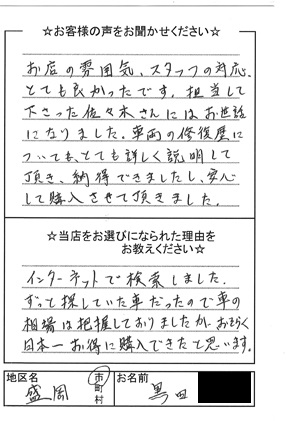 ☆お客様の声をお聞かせください☆
お店の雰囲気、スタッフの対応、
とても良かったです。担当して
下さった佐々木さんにはお世話
になりました。車両の修復歴に
ついても、とても詳しく説明して
頂き、納得できましたし、安心
して購入させて頂きました。
☆当店をお選びになられた理由を
お教えください☆
インターネットで検索しました。
ずっと探していた車だったので車の
相場は把握しておりましたが、おそらく
日本一お得に購入できたと思います。
地区名 盛岡 市町村 お名前 黒田